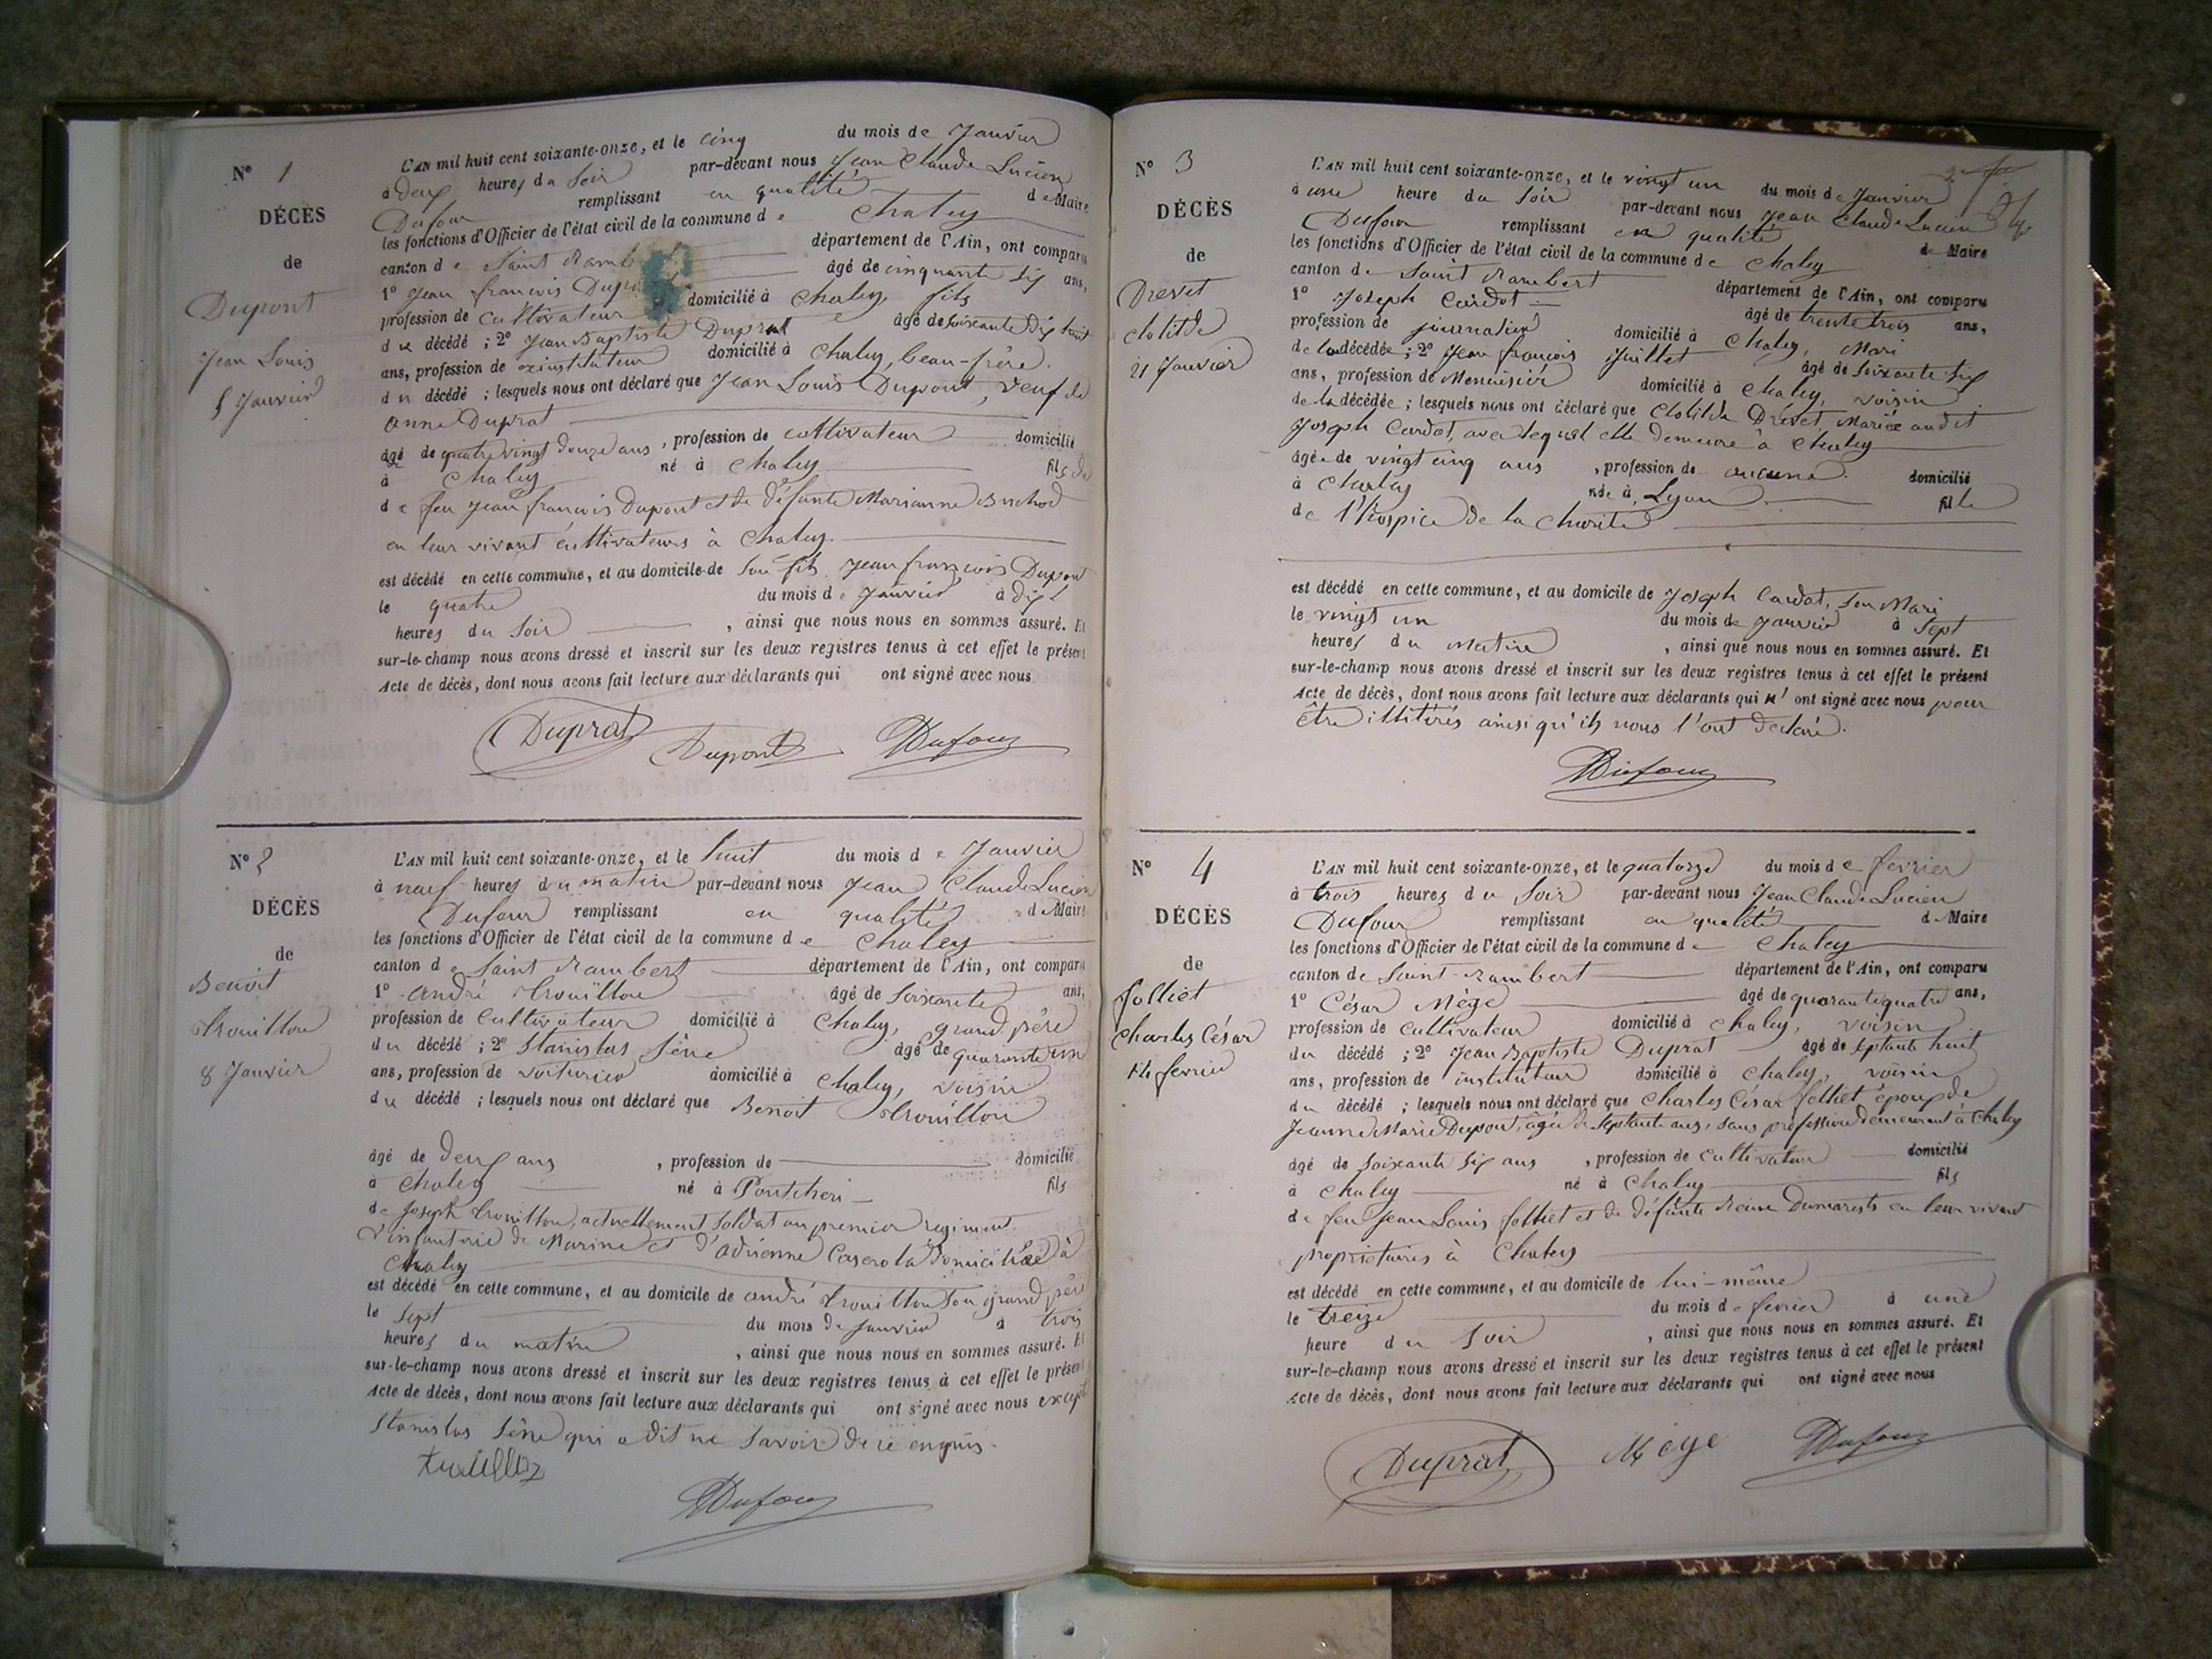 N° 1
DÉCÈS
de
Dupont
Jean Louis
5 Janvier
L'AN mil huit cent soixante-onze, et le cinq du mois de Janvier
à deux heures du Soir par-devant nous Jean Claude Lucien
Dufour remplissant en qualité de Maire
les fonctions d'Officier de l'état civil de la commune de Chaley
canton de Saint Ramb département de l'Ain, ont comparu
1° Jean françois Dupo âgé de cinquante six ans,
profession de cultivateur domicilié à Chaley, fils
du décédé ; 2° Jean Baptiste Duprat âgé de soixante dix huit
ans, profession de exinstituteur domicilié à Chaley, beau-frère.
du décédé ; lesquels nous ont déclaré que Jean Louis Dupont, veuf de
anne Duprat
âgé de quatre vingt douze ans, profession de cultivateur domicilié
à Chaley né à Chaley fils de
de feu Jean françois Dupont et de défunte Marianne Buchod
en leur vivant cultivateurs à Chaley.
est décédé en cette commune, et au domicile de son fils Jean françois Dupont
le quatre du mois de Janvier à dix
heures du Soir, ainsi que nous nous en sommes assuré. Et
sur-le-champ nous avons dressé et inscrit sur les deux registres tenus à cet effet le présent
Acte de décès, dont nous avons fait lecture aux déclarants qui ont signé avec nous
Duprat Dupont Dufour
N° 2
DÉCÈS
de
Benoit
trouillou
8 Janvier
L'AN mil huit cent soixante-onze, et le huit du mois de Janvier
à neuf heures du matin par-devant nous Jean Claude Lucien
Dufour remplissant en qualité de Maire
les fonctions d'Officier de l'état civil de la commune de Chaley
canton de Saint Rambert département de l'Ain, ont comparu
1° andré trouillou âgé de Soixante ans,
profession de cultivateur domicilié à Chaley, grand père
du décédé ; 2° Stanislas Sène âgé de quarante un
ans, profession de voiturier domicilié à Chaley, voisin
du décédé ; lesquels nous ont déclaré que Benoit trouillou
âgé de deux ans, profession de domicilié
à Chaley né à fils
de Joseph trouillou, actuellement soldat au premier regiment
d'infanterie de Marine et d'adrienne domiciliée à
Chaley
est décédé en cette commune, et au domicile de andré trouillou son grand père
le sept du mois de Janvier à trois
heures du matin, ainsi que nous nous en sommes assuré. Et
sur-le-champ nous avons dressé et inscrit sur les deux registres tenus à cet effet le présent
Acte de décès, dont nous avons fait lecture aux déclarants qui ont signé avec nous except
Stanislas Sène qui a dit ne savoir de ce enquis.
Dufour
N° 3
DÉCÈS
de
Drevet
clotilde
21 Janvier
L'AN mil huit cent soixante-onze, et le vingt un du mois de Janvier
à une heure du Soir par-devant nous Jean Claude Lucien
Dufour remplissant en qualité de Maire
les fonctions d'Officier de l'état civil de la commune de Chaley
canton de Saint Rambert département de l'Ain, ont comparu
1° Joseph Cardot âgé de trente trois ans,
profession de journalier domicilié à Chaley, Mari
de la décédée ; 2° Jean françois Juillet âgé de soixante six
ans, profession de Menuisier domicilié à Chaley, voisin
de la décédée ; lesquels nous ont déclaré que Clotilde Drevet, Mariée audit
Joseph Cardot, avec lequel elle demeure à Chaley
âgée de vingt cinq ans, profession de aucune. domicilié
à Chaley née à Lyon fille
de l'hospice de la Charité
est décédé en cette commune, et au domicile de Joseph Cardot, son Mari
le vingt un du mois de Janvier à sept
heures du matin, ainsi que nous nous en sommes assuré. Et
sur-le-champ nous avons dressé et inscrit sur les deux registres tenus à cet effet le présent
Acte de décès, dont nous avons fait lecture aux déclarants qui n' ont signé avec nous pour
être illitérés ainsi qu'ils nous l'ont déclaré.
Dufour
N° 4
DÉCÈS
de
folliet
Charles César
14 fevrier
L'AN mil huit cent soixante-onze, et le quatorze du mois de fevrier
à trois heures du Soir par-devant nous Jean Claude Lucien
Dufour remplissant en qualité de Maire
les fonctions d'Officier de l'état civil de la commune de Chaley
canton de Saint-Rambert département de l'Ain, ont comparu
1° César Mège âgé de quarante quatre ans,
profession de cultivateur domicilié à Chaley, voisin
du décédé ; 2° Jean Baptiste Duprat âgé de septante huit
ans, profession de instituteur domicilié à Chaley, voisin
du décédé ; lesquels nous ont déclaré que Charles César folliet époux de
Jeanne Marie Dupont, âgée de septante ans, sans profession demeurant à Chaley
âgé de soixante six ans, profession de cultivateur domicilié
à Chaley né à Chaley fils
de feu Jean Louis folliet et de défunte Reine Dumarest en leur vivant
propriétaires à Chaley
est décédé en cette commune, et au domicile de lui-même
le treize du mois de fevrier à une
heure du Soir, ainsi que nous nous en sommes assuré. Et
sur-le-champ nous avons dressé et inscrit sur les deux registres tenus à cet effet le présent
Acte de décès, dont nous avons fait lecture aux déclarants qui ont signé avec nous
Duprat Mège Dufour